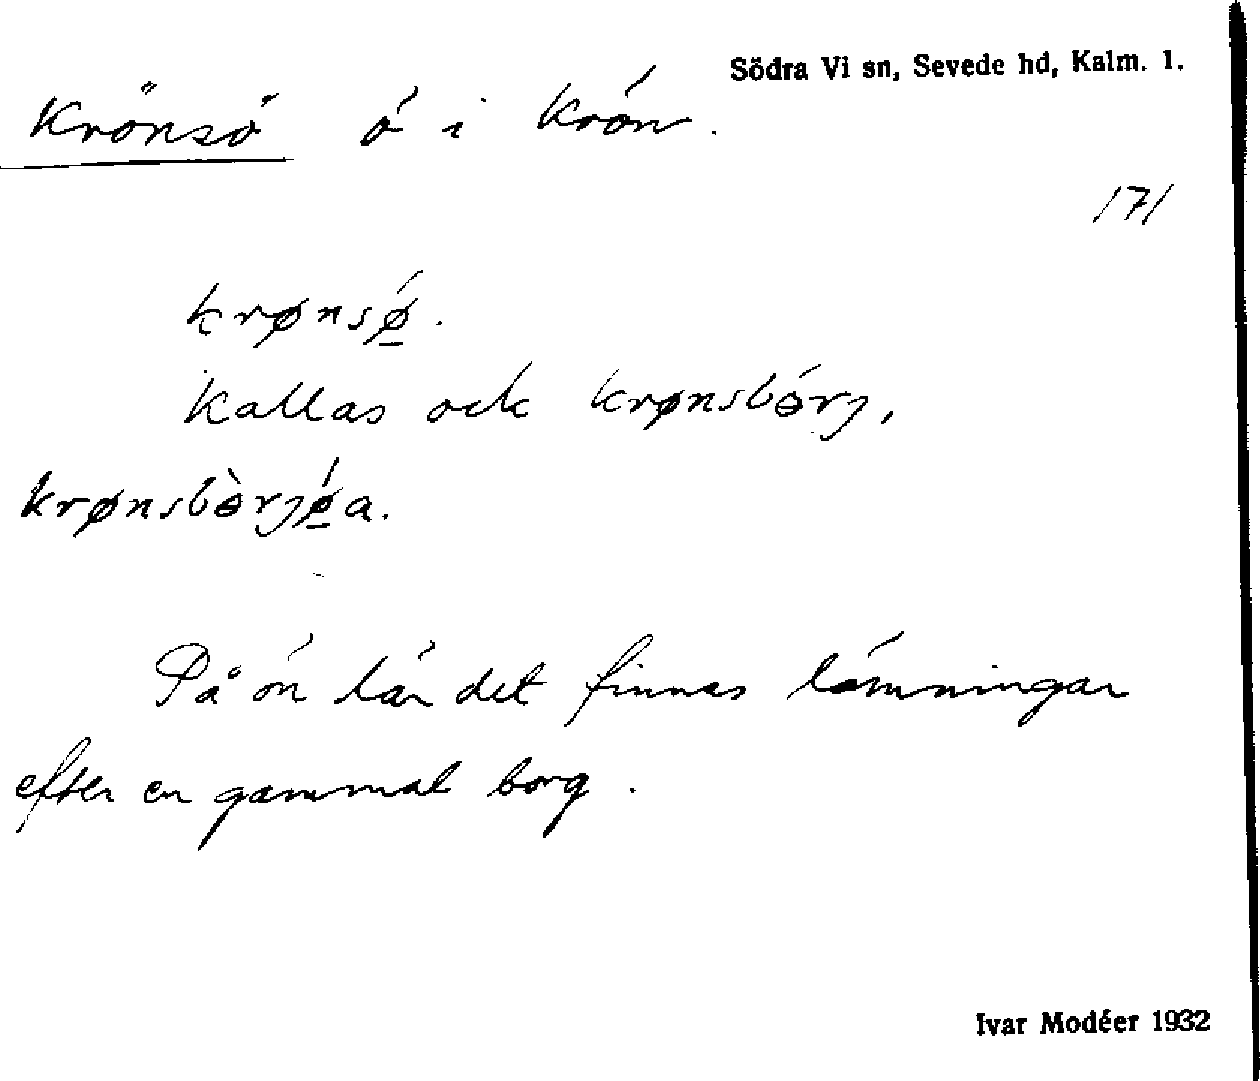 Södra Vi sn, Sevede hd, Kalm. l.
Krönsö ö i Krön.
171
krønsǿ.
Kallas ock krønsbórj,
krønsbòrjǿa.
På ön lär det finnas lämningar
efter en gammal borg.
Ivar Modéer 1932